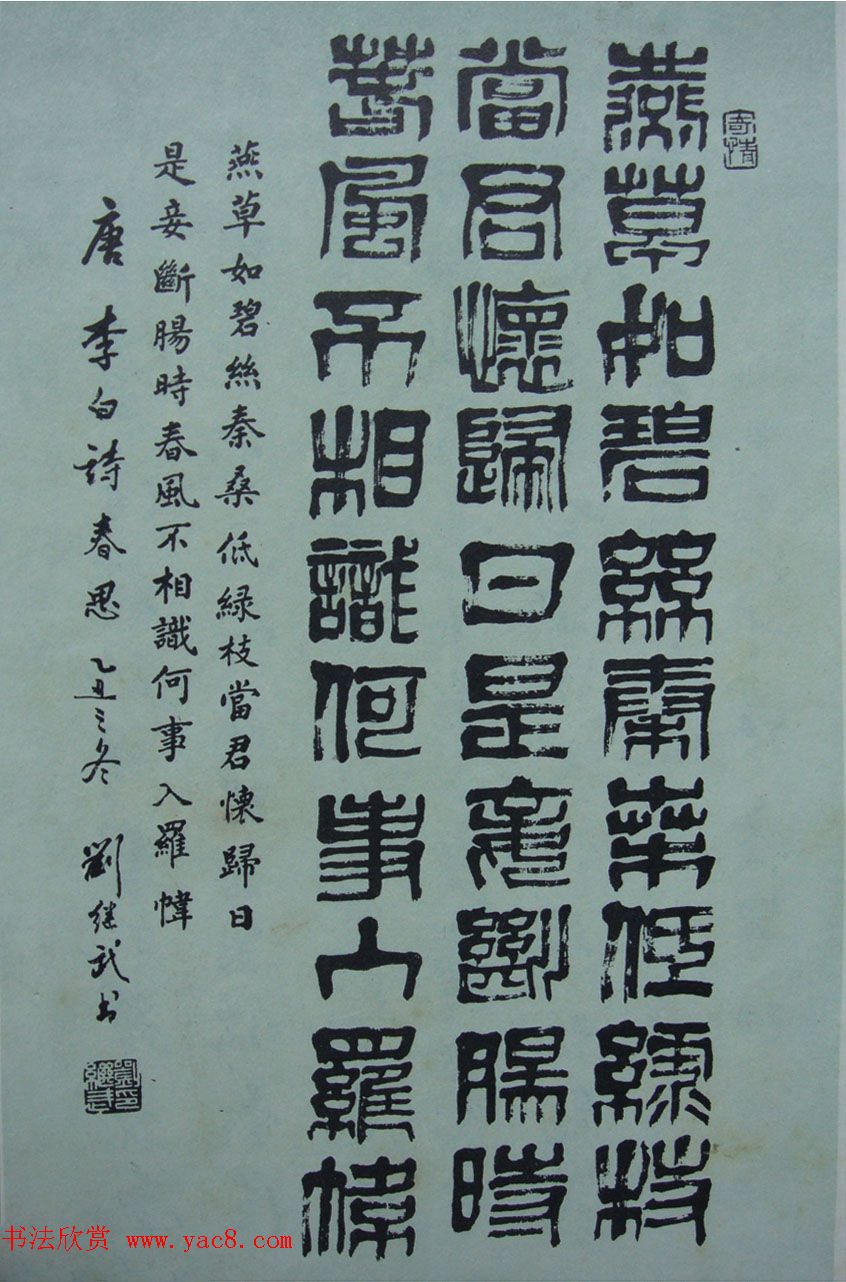 寄情
燕草如碧絲秦桑低綠枝
當君懷歸日是妾斷腸時
春風不相識何事入羅幃
燕草如碧絲秦桑低緑枝當君懷歸日
是妾斷腸時春風不相識何事入羅幃
唐李白詩春思乙丑之冬劉继武书
劉繼武印
书法欣赏 www.yac8.com